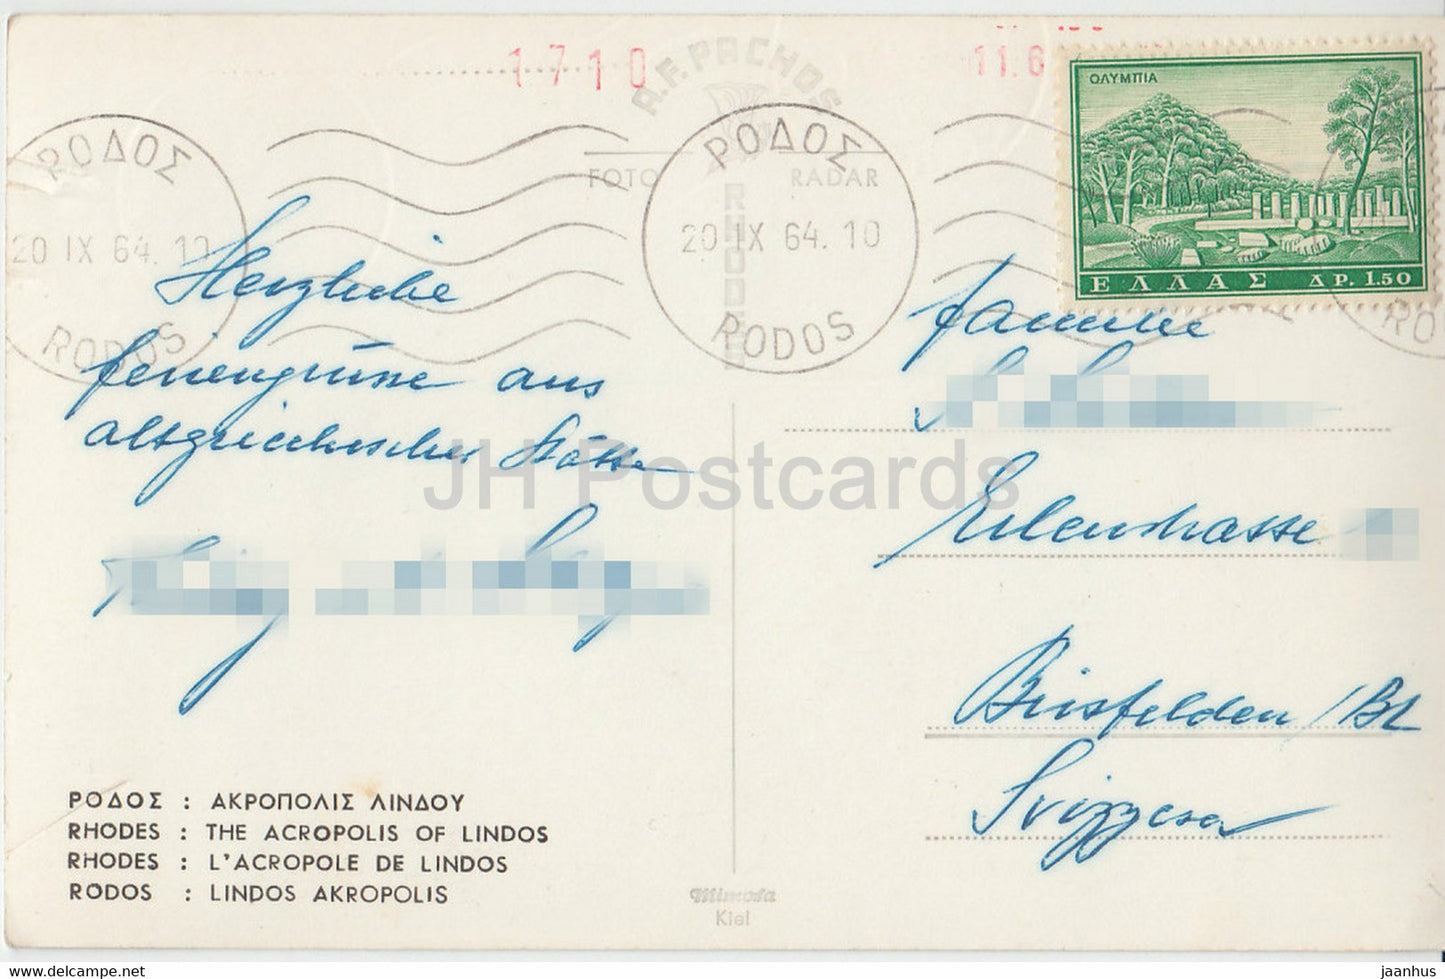 1710
11.6
A.F. PACHOS
RHODES
FOTO RADAR
ΟΛΥΜΠΙΑ
ΕΛΛΑΣ ΔΡ. 1.50
ΡΟΔΟΣ
20 IX 64. 10
RODOS
ΡΟΔΟΣ
20 IX 64. 10
RODOS
Herzliche
feriengrüsse aus
altgriechischer Stätte
Familie
Erlenstrasse
Birsfelden /BL
Svizzera
JH Postcards
ΡΟΔΟΣ : ΑΚΡΟΠΟΛΙΣ ΛΙΝΔΟΥ
RHODES : THE ACROPOLIS OF LINDOS
RHODES : L'ACROPOLE DE LINDOS
RODOS : LINDOS AKROPOLIS
Mimosa
Kiel
www.delcampe.net
jaanhus